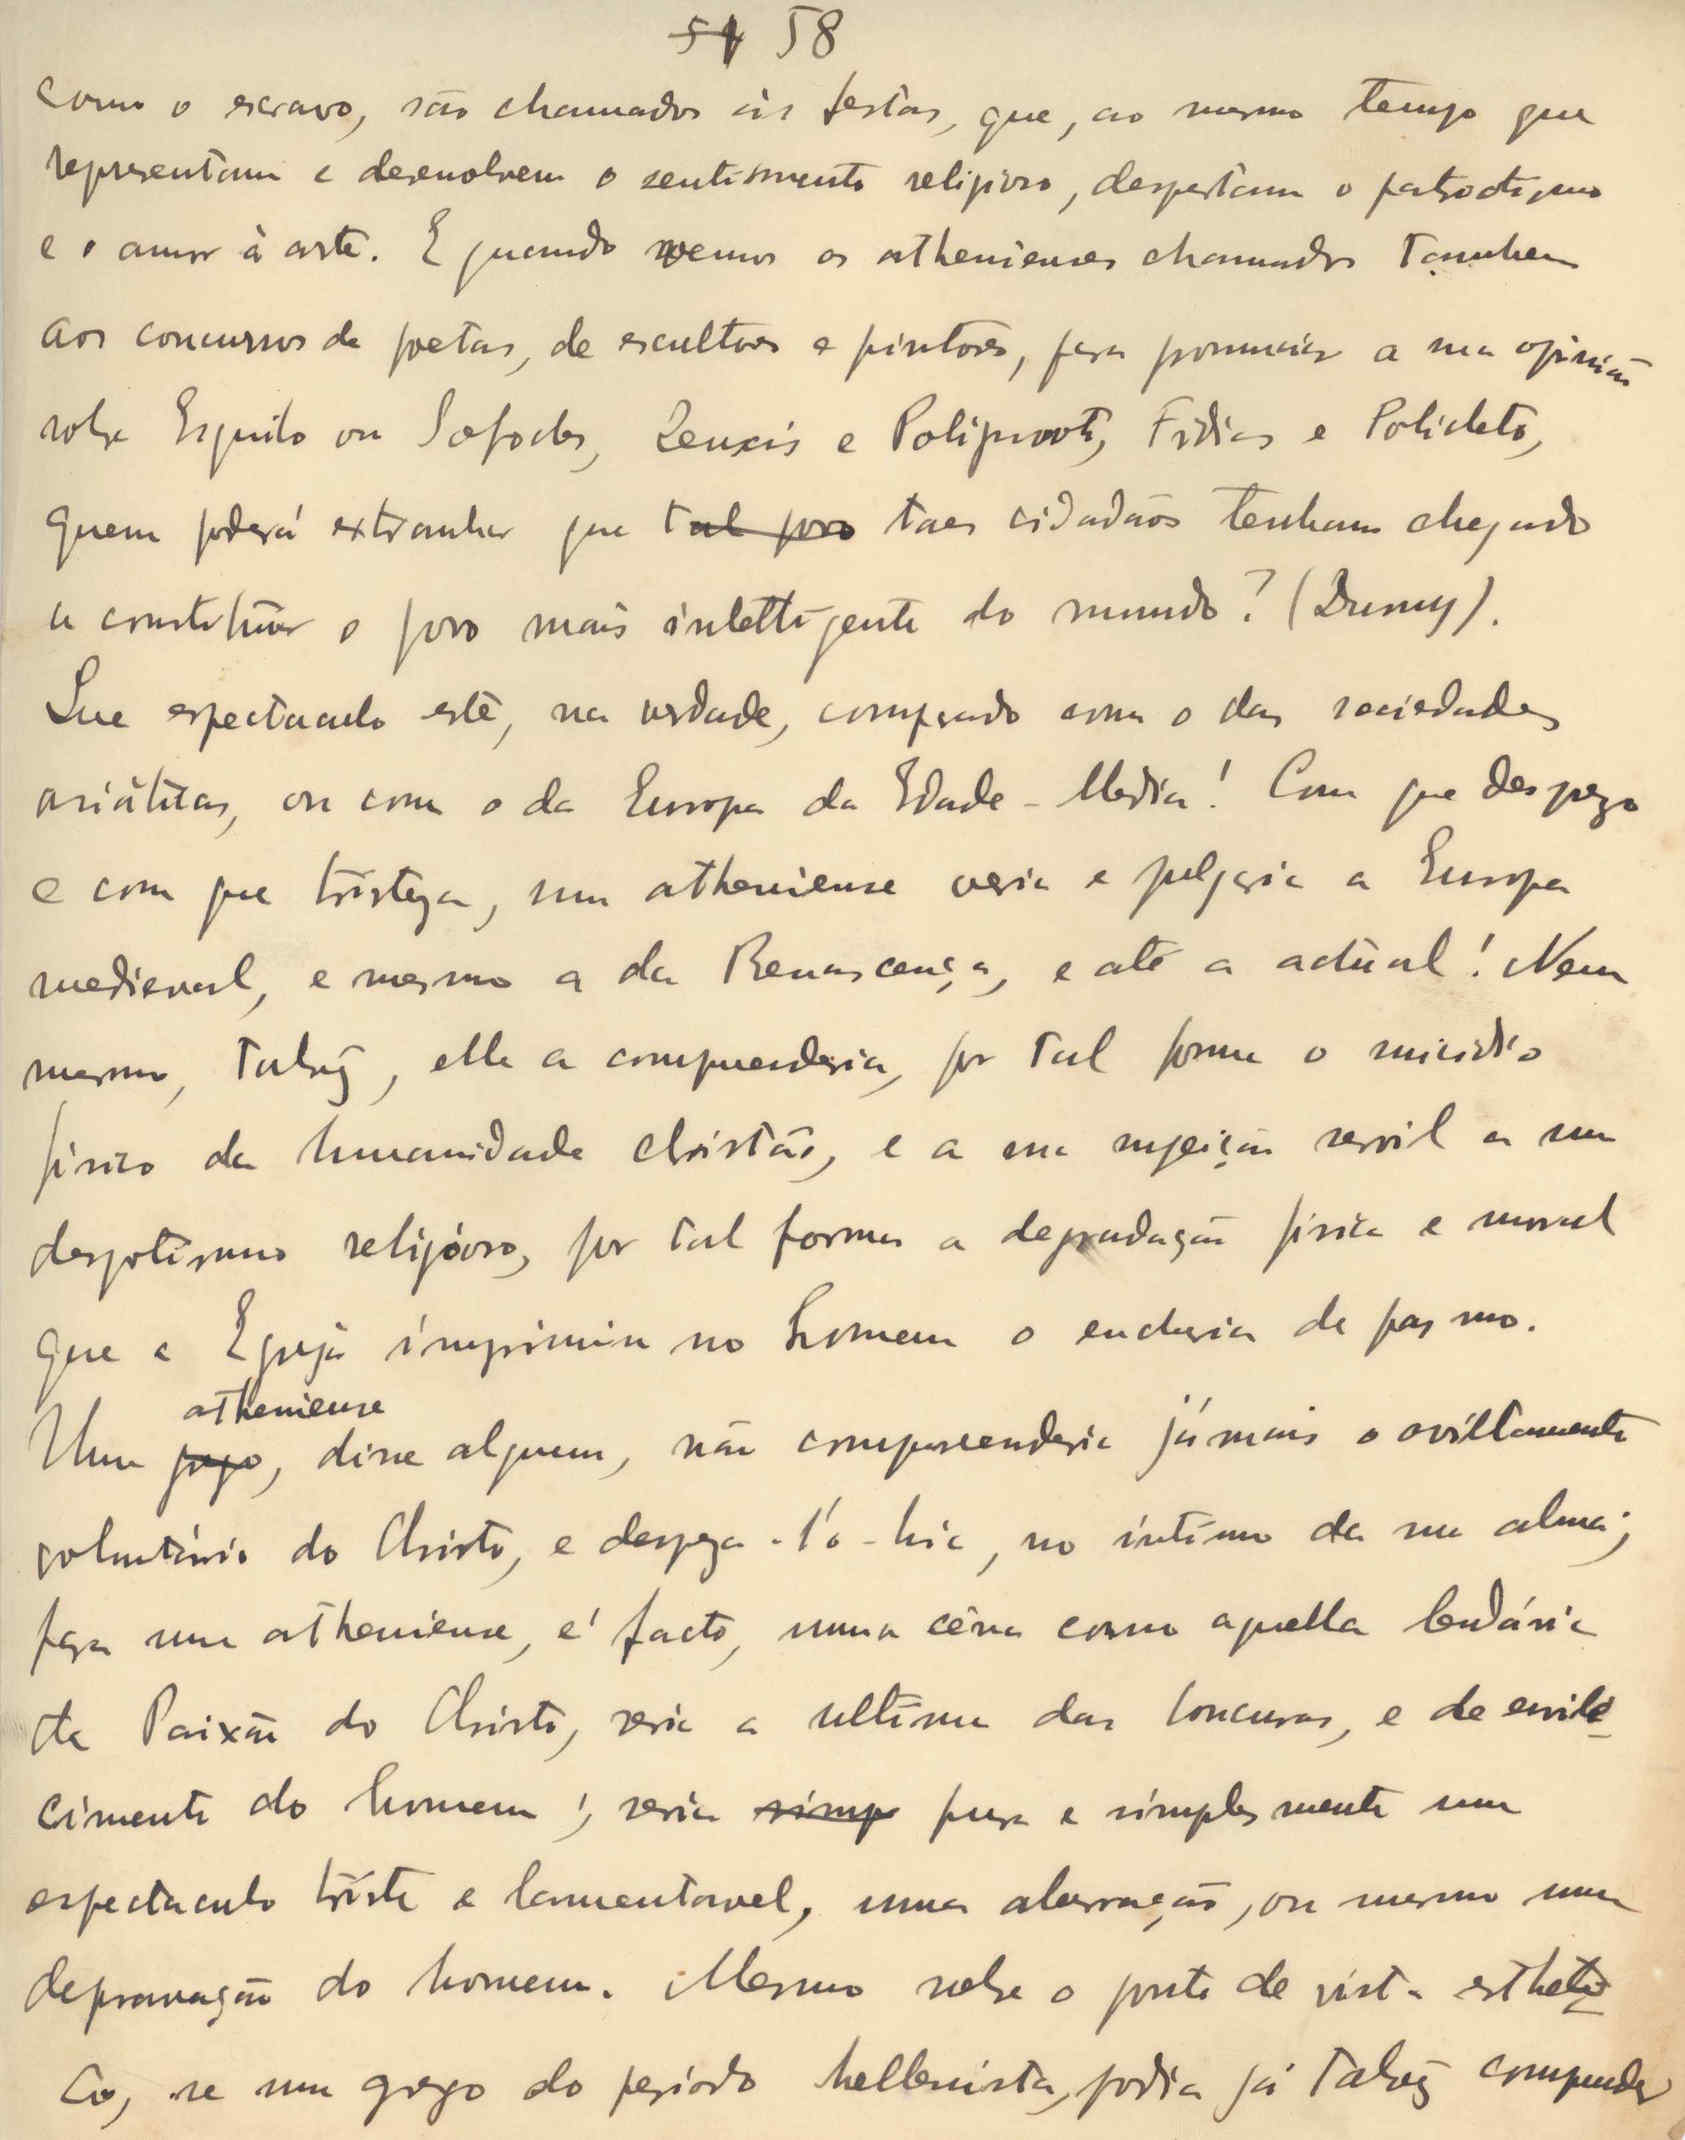 54 58
como o escravo, são chamados ás festas, que, ao mesmo tempo que
representam e desenvolvem o sentimento religioso, despertam o patriotismo
e o amor à arte. E quando vemos os athenienses chamados tambem
aos concursos de poetas, de escultores e pintores, para pronunciar a sua opinião
sobre Esquilo ou Sofocles, Zeuxis e Polignoto, Fidias e Policleto,
quem poderá extranhar que tal povo taes cidadãos tenham chegado
a constituir o povo mais intelligente do mundo? (Duruy).
Que espectaculo este, na verdade, comparado com o das sociedades
asiáticas, ou com o da Europa da Edade-Media! Com que desprezo
e com que tristeza, um atheniense veria e julgaria a Europa
medieval, e mesmo a da Renascença, e até a actual! Nem
mesmo, talvez, elle a comprenderia, por tal forma o suicidio
fisico da humanidade christã, e a sua sujeição servil a um
despotismo religioso, por tal forma a degradação fisica e moral
que a Egreja imprimiu no homem o encheria de pasmo.
atheniense
Um grego, disse alguem, não comprehenderia jámais o aviltamento
voluntário do Christo, e despreza-l'o-hia, no intimo da sua alma;
para um atheniense, é facto, uma cêna como aquella lendária
da Paixão do Christo, seria a ultima das loucuras, e de envile-
cimento do homem; seria simp pura e simplesmente um
espectaculo triste e lamentavel, uma aberração, ou mesmo uma
depravação do homem. Mesmo sobre o ponto de vista estheti-
co, se um grego do periodo hellenista, podia já talvez comprender